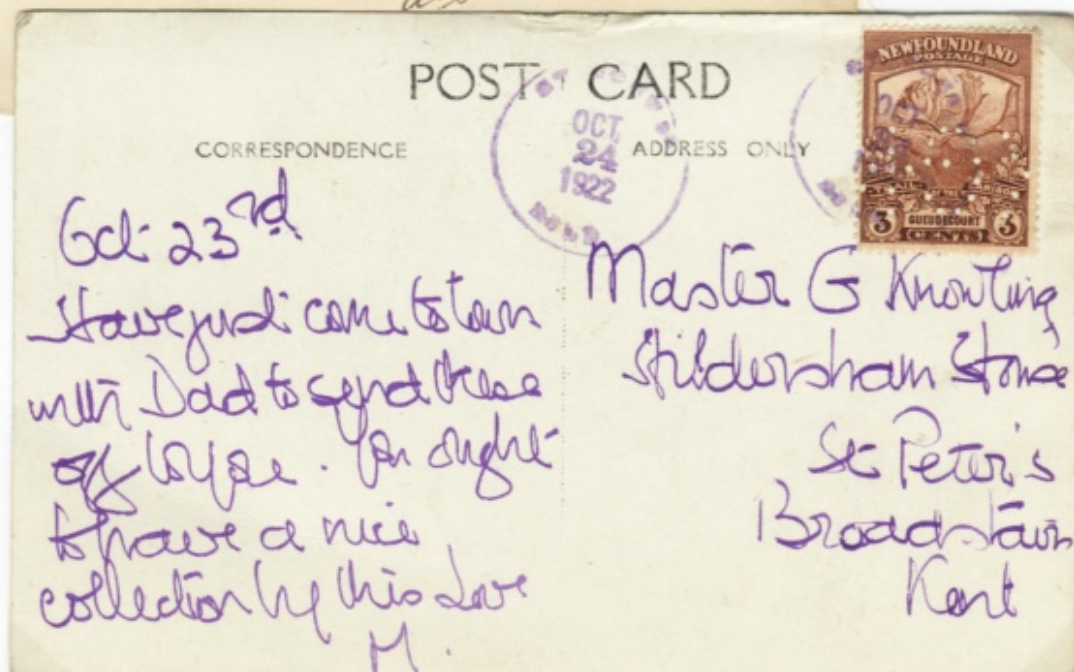 POST CARD
CORRESPONDENCE
ADDRESS ONLY
OCT
24
1922
NEWFOUNDLAND
POSTAGE
GUEUDECOURT
3 CENTS 3
Oct 23rd
Have just come to town
with Dad to send these
off to you. You ought
to have a nice
collection by this Love
M.
Master G Knowling
Hildersham House
St Peter's
Broadstairs
Kent